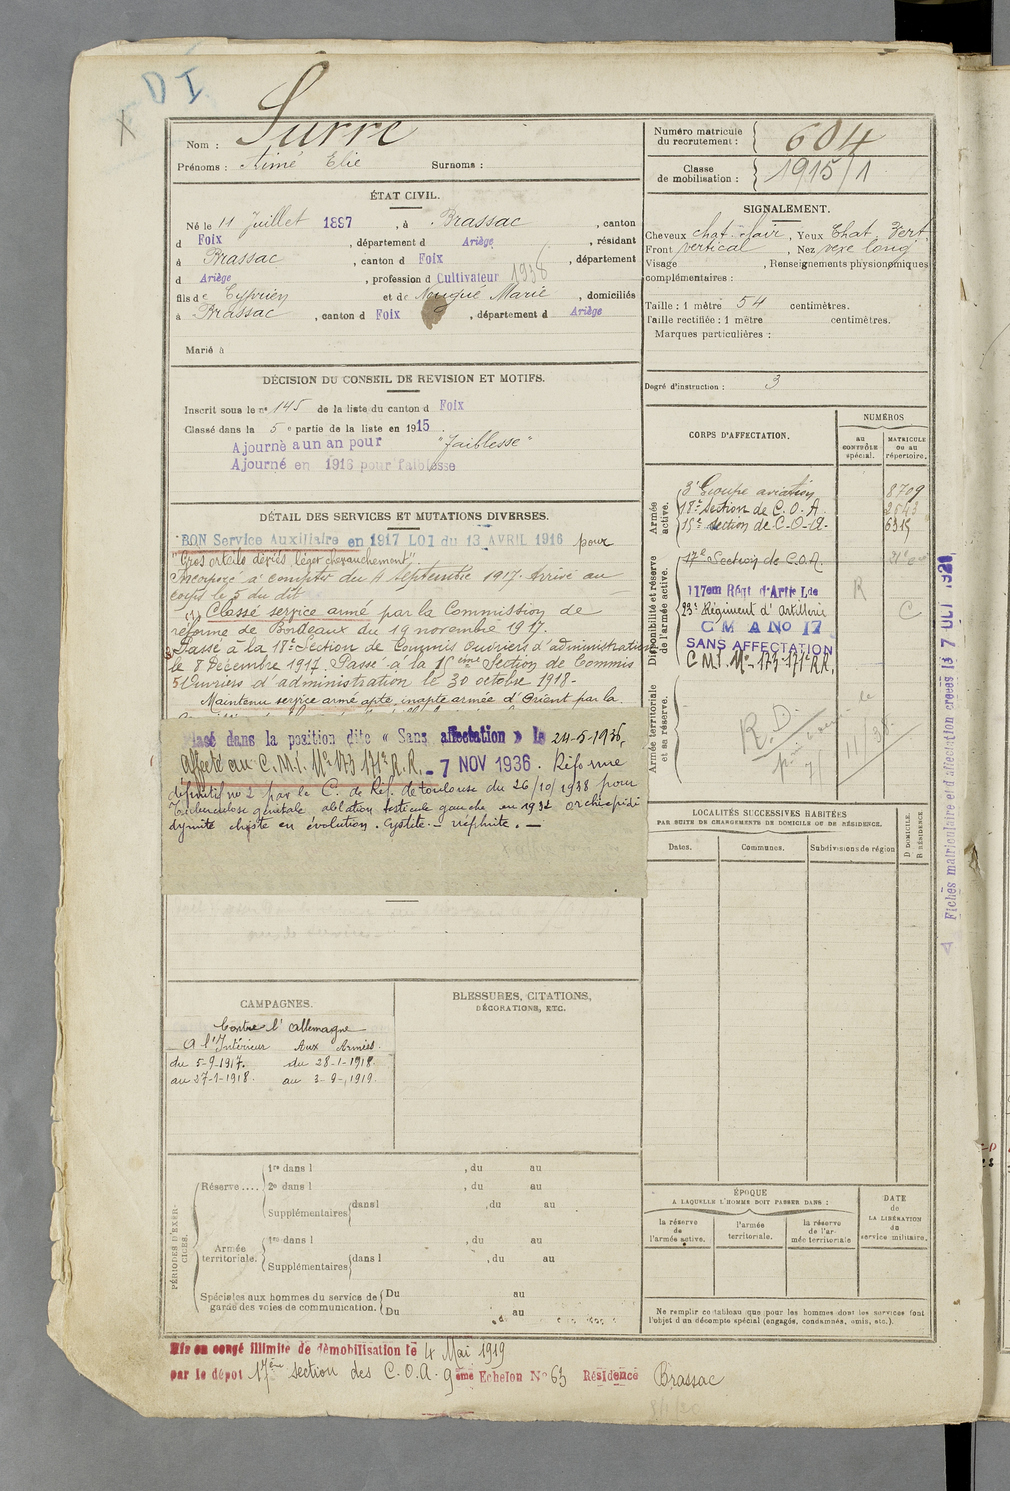 DI
X
Nom : Surre
Prénoms : Aimé Elie Surnoms :
ÉTAT CIVIL.
Né le 11 Juillet 1897, à Brassac, canton
d Foix, département d Ariège, résidant
à Brassac, canton d Foix, département
d Ariège, profession d Cultivateur 1936
fils de Cyprien et de Marie, domiciliés
à Brassac, canton d Foix, département d Ariège
Marié à
DÉCISION DU CONSEIL DE REVISION ET MOTIFS.
Inscrit sous le n° 145 de la liste du canton d Foix
Classé dans la 5e partie de la liste en 1915
Ajourné a un an pour "Faiblesse"
Ajourné en 1916 pour faiblesse
DÉTAIL DES SERVICES ET MUTATIONS DIVERSES.
BON Service Auxiliaire en 1917 LOI du 13 AVRIL 1916 pour
"Gros orteils déviés, léger chevauchement".
Incorporé à compter du 4 Septembre 1917. Arrivé au
corps le 5 du dit
(1) Classé service armé par la Commission de
réforme de Bordeaux du 19 novembre 1917.
Passé à la 18e Section de Commis Ouvriers d'administration
le 8 Décembre 1917. Passé à la 15ème Section de Commis
Ouvriers d'administration le 30 octobre 1918-
Maintenu service armé apte, inapte armée d'Orient par la
Clasé dans la position dite « Sans affectation » le 24-5-1936,
Affecté au C.M.I. N° 173 171e R.R. - 7 NOV 1936. Réforme
définitif no 2 par la C. de Réf. de toulouse du 26/10/1938 pour
Tuberculose génitale ablation testicule gauche en 1932 orchiépidi
dymite droite en évolution. Cystite. - néphrite. -
CAMPAGNES.
Contre l'Allemagne
A l'Intérieur Aux Armées.
du 5-9-1917. du 28-1-1918.
au 27-1-1918. au 3-9-1919.
BLESSURES, CITATIONS,
DÉCORATIONS, ETC.
PÉRIODES D'EXERCICES.
Réserve....
1re dans l , du au
2e dans l , du au
Supplémentaires dans l , du au
Armée
territoriale.
1re dans l , du au
Supplémentaires dans l , du au
Spéciales aux hommes du service de
garde des voies de communication.
Du au
Du au
Mis en congé illimité de démobilisation le 4 Mai 1919
par le dépôt 17ème section des C.O.A. 9ème Echelon N° 63 Résidence Brassac
Numéro matricule
du recrutement : 604
Classe
de mobilisation : 1915/1
SIGNALEMENT.
Cheveux chat. clair, Yeux Chat. Vert
Front vertical, Nez vexe long
Visage , Renseignements physionomiques
complémentaires :
Taille : 1 mètre 54 centimètres.
Taille rectifiée : 1 mètre centimètres.
Marques particulières :
Degré d'instruction : 3
CORPS D'AFFECTATION.
NUMÉROS
au
CONTRÔLE
spécial.
MATRICULE
ou au
répertoire.
Armée
active.
3e Groupe aviation 8709
18e section de C.O.A. 2543
15e section de C-O-A- 6315
Disponibilité et réserve
de l'armée active.
17e Section de C.O.A.
R
117em Régt d'Artie Lde
23e Régiment d'artillerie C
C M A No 17
SANS AFFECTATION
C.M.I. N°- 173-171e R.R.
Armée territoriale
et sa réserve.
R.D.
LOCALITÉS SUCCESSIVES HABITÉES
PAR SUITE DE CHANGEMENTS DE DOMICILE OU DE RÉSIDENCE.
Dates.
Communes.
Subdivisions de région
D DOMICILE.
R RÉSIDENCE
ÉPOQUE
A LAQUELLE L'HOMME DOIT PASSER DANS :
la réserve
de
l'armée active.
l'armée
territoriale.
la réserve
de l'ar-
mée territoriale
DATE
de
LA LIBÉRATION
du
service militaire.
Ne remplir ce tableau que pour les hommes dont les services font
l'objet d'un décompte spécial (engagés, condamnés, omis, etc.).
Fiches matriculaire et d'affectation créées le 7 OCT 1921